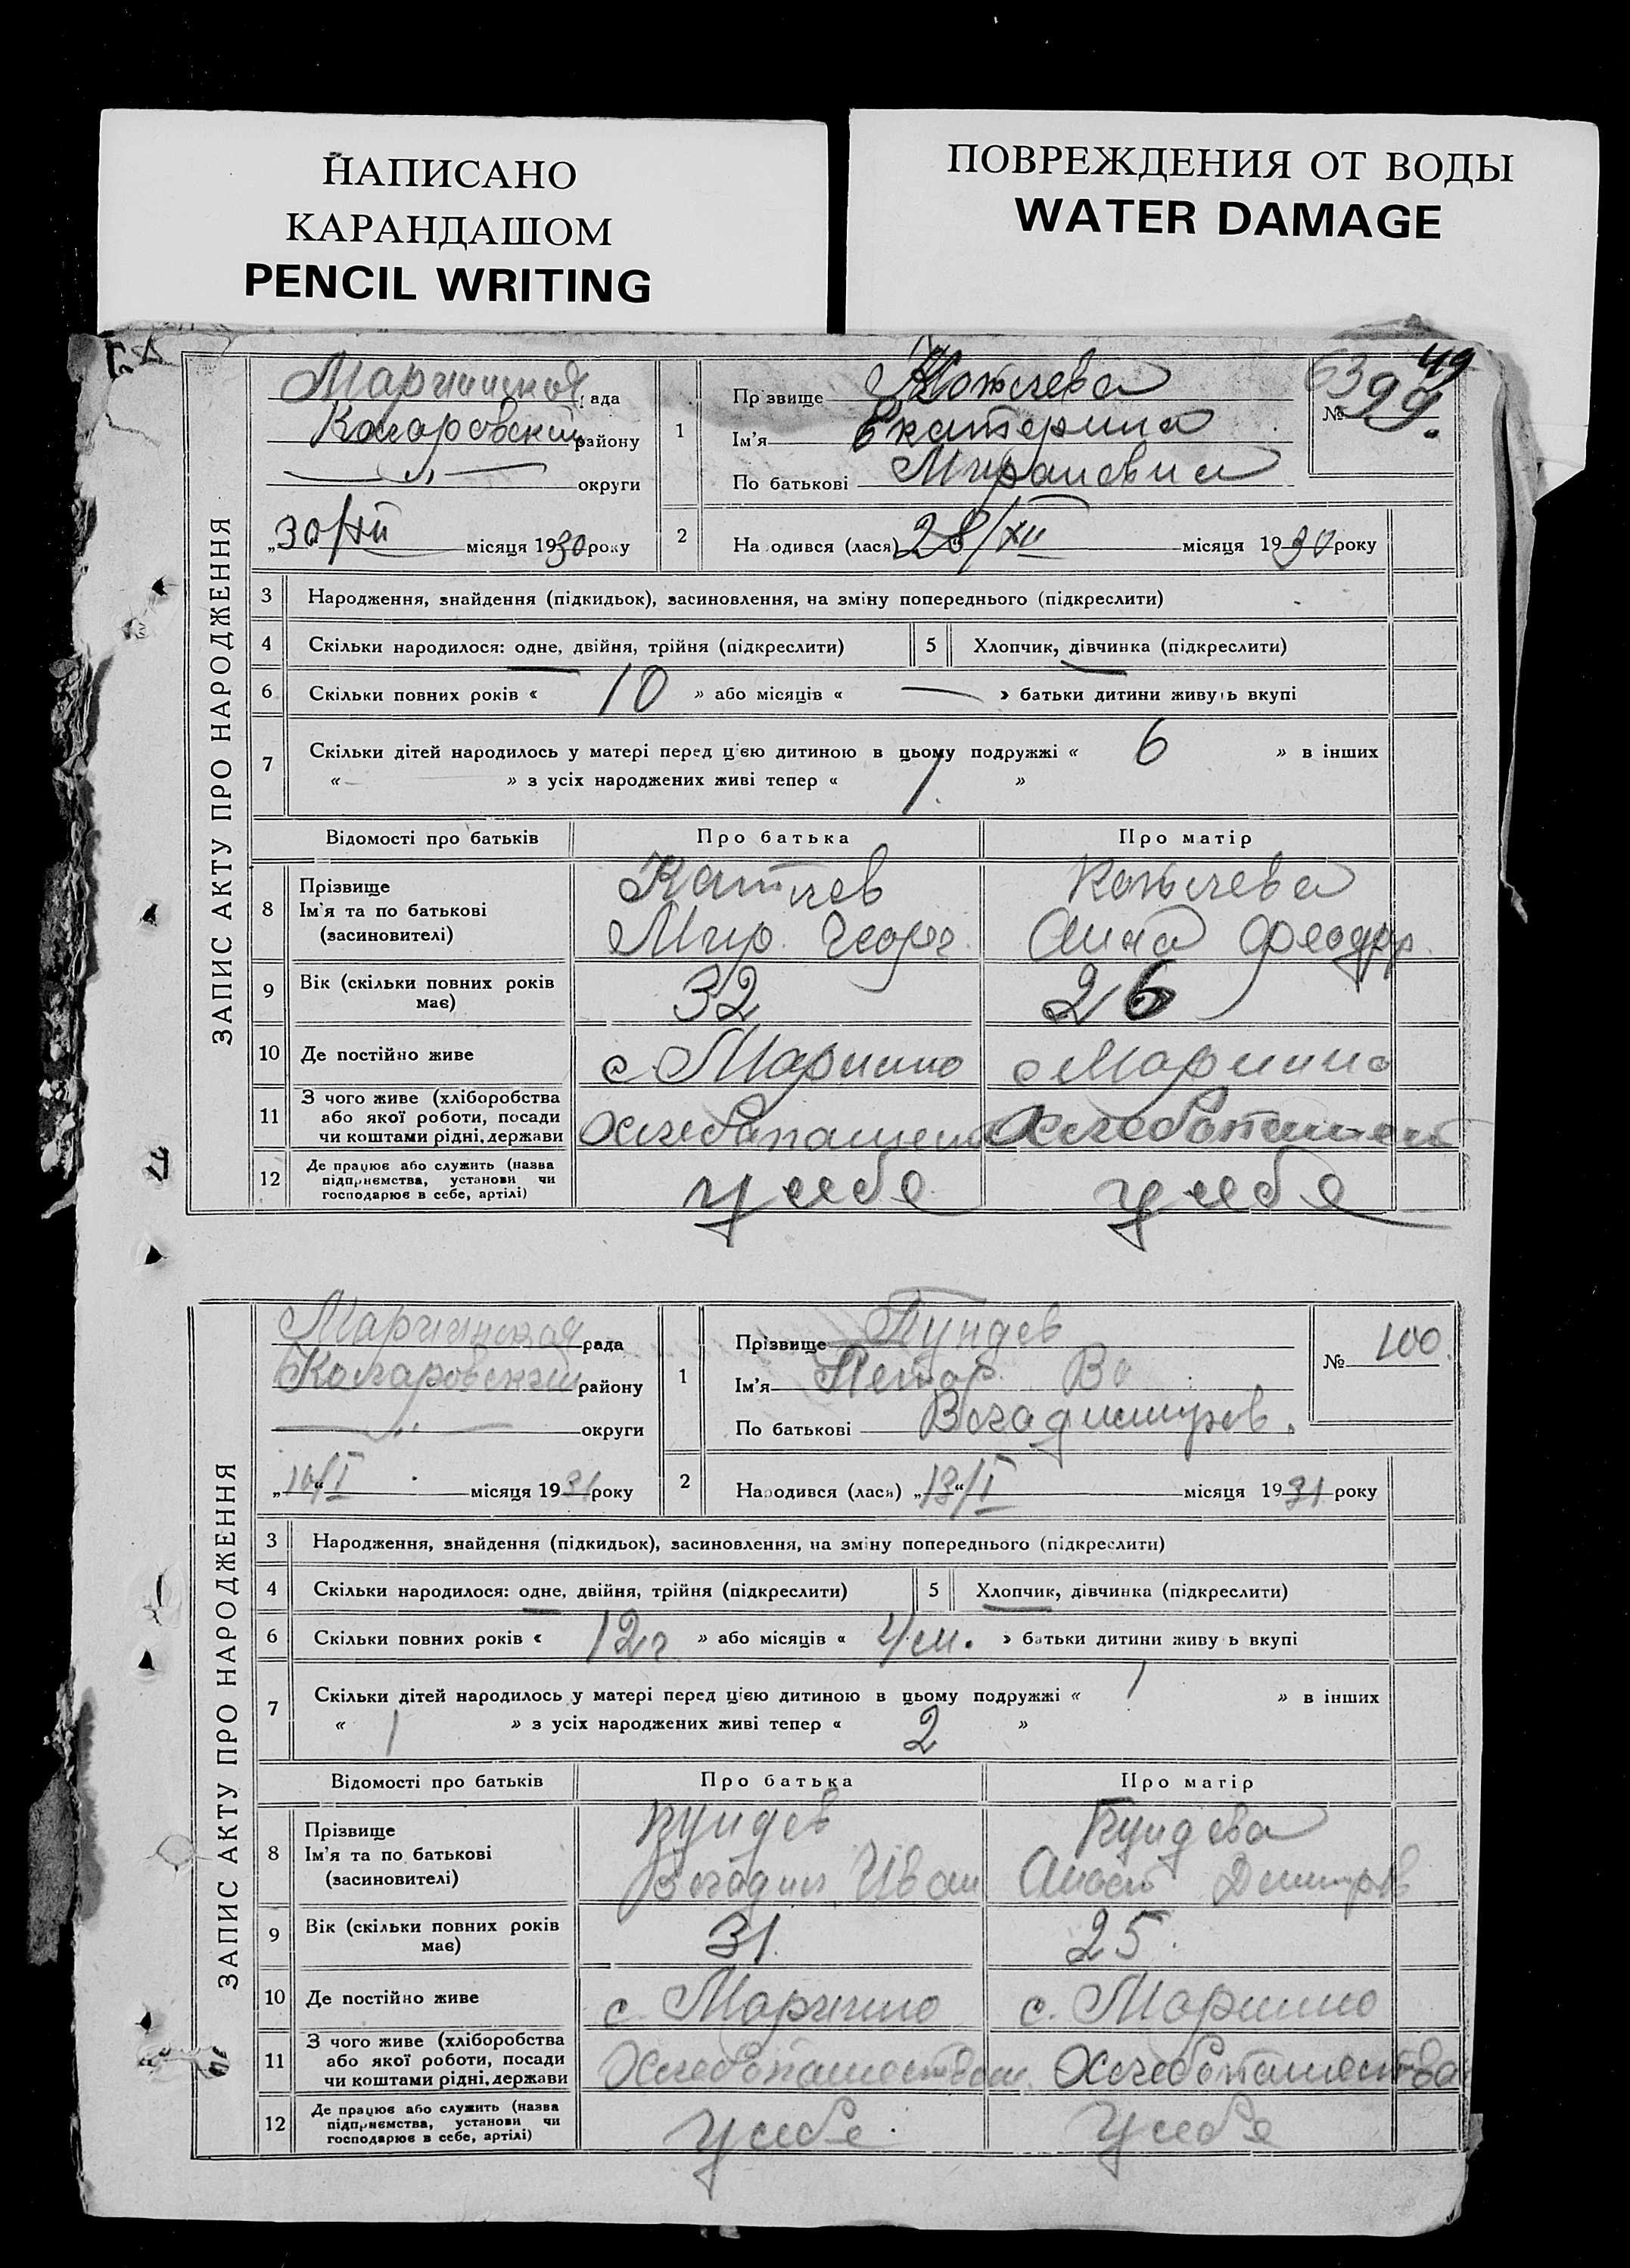 НАПИСАНО
КАРАНДАШОМ
PENCIL WRITING
ПОВРЕЖДЕНИЯ ОТ ВОДЫ
WATER DAMAGE
ЗАПИС АКТУ ПРО НАРОДЖЕННЯ
Мариинская рада
Коларовский району
— „ — округи
„30/XII місяця 1930 року
1 Прізвище
Ім'я Екатерина
По батькові
№ 99.
49
63
2 Народився (лася) 28/XII місяця 1930 року
3 Народження, знайдення (підкидьок), засиновлення, на зміну попереднього (підкреслити)
4 Скільки народилося: одне, двійня, трійня (підкреслити)
5 Хлопчик, дівчинка (підкреслити)
6 Скільки повних років « 10 » або місяців « — » батьки дитини живуть вкупі
7 Скільки дітей народилось у матері перед цією дитиною в цьому подружжі « 6 » в інших
« — » з усіх народжених живі тепер « 1. »
Відомості про батьків Про батька Про матір
8 Прізвище
Ім'я та по батькові Мир. Георг. Анна Феодор.
(засиновителі)
9 Вік (скільки повних років має) 32 26
10 Де постійно живе с. Марино с Марино
11 З чого живе (хліборобства
або якої роботи, посади
чи коштами рідні, держави Хлебопашест Хлебопашест
12 Де працює або служить (назва
підприємства, установи чи
господарює в себе, артілі) у себе у себе
ЗАПИС АКТУ ПРО НАРОДЖЕННЯ
Мариинская рада
Коларовский району
— „ — округи
„10/I місяця 1931 року
1 Прізвище Пундев
Ім'я Петр. Во
По батькові Владимиров.
№ 100.
2 Народився (лася) „13“/I місяця 1931 року
3 Народження, знайдення (підкидьок), засиновлення, на зміну попереднього (підкреслити)
4 Скільки народилося: одне, двійня, трійня (підкреслити)
5 Хлопчик, дівчинка (підкреслити)
6 Скільки повних років « 12 г » або місяців « 4 м. » батьки дитини живуть вкупі
7 Скільки дітей народилось у матері перед цією дитиною в цьому подружжі « 1 » в інших
« 1 » з усіх народжених живі тепер « 2 »
Відомості про батьків Про батька Про матір
8 Прізвище Пундев Пундева
Ім'я та по батькові Владим Иван Анаст Дмитров
(засиновителі)
9 Вік (скільки повних років має) 31. 25.
10 Де постійно живе с. Марино с. Марино
11 З чого живе (хліборобства
або якої роботи, посади
чи коштами рідні, держави Хлебопашеством Хлебопашества
12 Де працює або служить (назва
підприємства, установи чи
господарює в себе, артілі) у себе. у себе